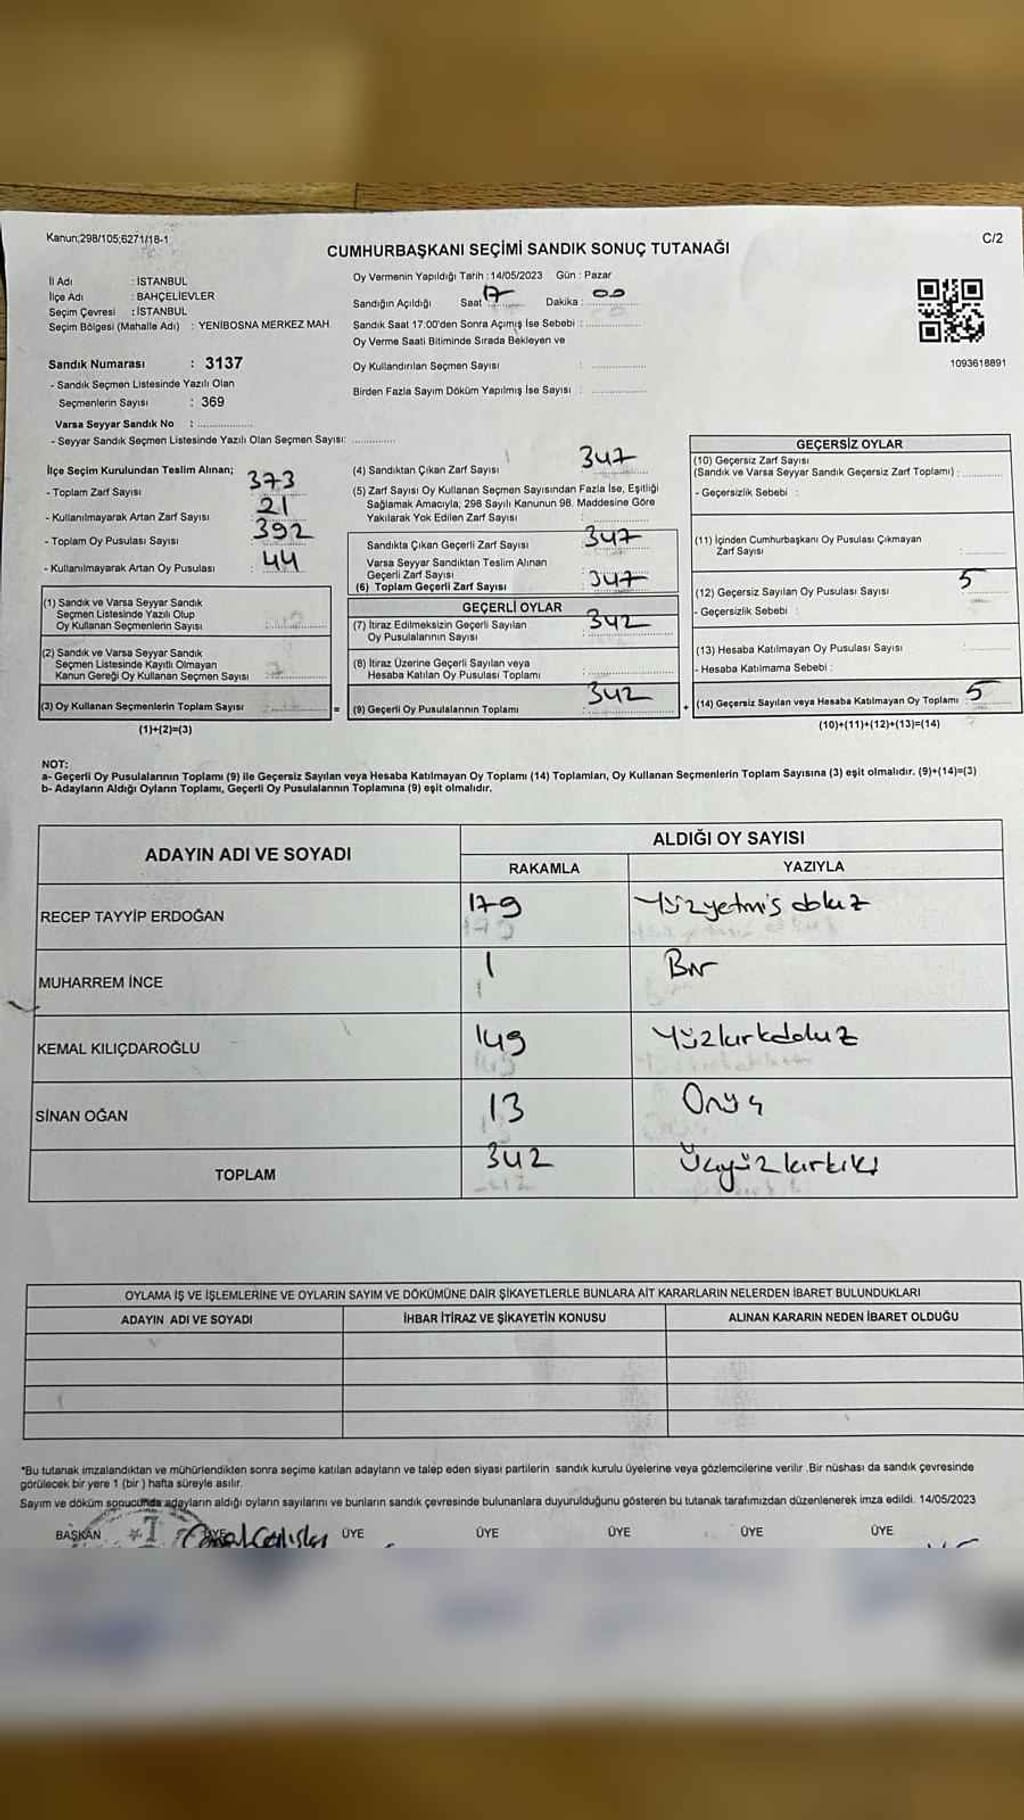 Kanun;298/105;6271/18-1
C/2
CUMHURBAŞKANI SEÇİMİ SANDIK SONUÇ TUTANAĞI
İl Adı : İSTANBUL
İlçe Adı : BAHÇELİEVLER
Seçim Çevresi : İSTANBUL
Seçim Bölgesi (Mahalle Adı) : YENİBOSNA MERKEZ MAH.
Oy Vermenin Yapıldığı Tarih : 14/05/2023 Gün : Pazar
Sandığın Açıldığı Saat 17 Dakika : 00
Sandık Saat 17:00'den Sonra Açımış İse Sebebi :
Oy Verme Saati Bitiminde Sırada Bekleyen ve
Oy Kullandırılan Seçmen Sayısı :
Birden Fazla Sayım Döküm Yapılmış İse Sayısı :
1093618891
Sandık Numarası : 3137
- Sandık Seçmen Listesinde Yazılı Olan
Seçmenlerin Sayısı : 369
Varsa Seyyar Sandık No :
- Seyyar Sandık Seçmen Listesinde Yazılı Olan Seçmen Sayısı:
İlçe Seçim Kurulundan Teslim Alınan;
- Toplam Zarf Sayısı 373
- Kullanılmayarak Artan Zarf Sayısı 21
- Toplam Oy Pusulası Sayısı 392
- Kullanılmayarak Artan Oy Pusulası 44
(1) Sandık ve Varsa Seyyar Sandık
Seçmen Listesinde Yazılı Olup
Oy Kullanan Seçmenlerin Sayısı
(2) Sandık ve Varsa Seyyar Sandık
Seçmen Listesinde Kayıtlı Olmayan
Kanun Gereği Oy Kullanan Seçmen Sayısı
(3) Oy Kullanan Seçmenlerin Toplam Sayısı
(1)+(2)=(3)
=
(4) Sandıktan Çıkan Zarf Sayısı 347
(5) Zarf Sayısı Oy Kullanan Seçmen Sayısından Fazla İse, Eşitliği
Sağlamak Amacıyla, 298 Sayılı Kanunun 98. Maddesine Göre
Yakılarak Yok Edilen Zarf Sayısı
Sandıkta Çıkan Geçerli Zarf Sayısı 347
Varsa Seyyar Sandıktan Teslim Alınan
Geçerli Zarf Sayısı
(6) Toplam Geçerli Zarf Sayısı 347
GEÇERLİ OYLAR
(7) İtiraz Edilmeksizin Geçerli Sayılan
Oy Pusulalarının Sayısı 342
(8) İtiraz Üzerine Geçerli Sayılan veya
Hesaba Katılan Oy Pusulası Toplamı
(9) Geçerli Oy Pusulalarının Toplamı 342
+
GEÇERSİZ OYLAR
(10) Geçersiz Zarf Sayısı
(Sandık ve Varsa Seyyar Sandık Geçersiz Zarf Toplamı) :
- Geçersizlik Sebebi :
(11) İçinden Cumhurbaşkanı Oy Pusulası Çıkmayan
Zarf Sayısı
(12) Geçersiz Sayılan Oy Pusulası Sayısı 5
- Geçersizlik Sebebi :
(13) Hesaba Katılmayan Oy Pusulası Sayısı
- Hesaba Katılmama Sebebi :
(14) Geçersiz Sayılan veya Hesaba Katılmayan Oy Toplamı 5
(10)+(11)+(12)+(13)=(14)
NOT:
a- Geçerli Oy Pusulalarının Toplamı (9) ile Geçersiz Sayılan veya Hesaba Katılmayan Oy Toplamı (14) Toplamları, Oy Kullanan Seçmenlerin Toplam Sayısına (3) eşit olmalıdır. (9)+(14)=(3)
b- Adayların Aldığı Oyların Toplamı, Geçerli Oy Pusulalarının Toplamına (9) eşit olmalıdır.
ADAYIN ADI VE SOYADI
ALDIĞI OY SAYISI
RAKAMLA YAZIYLA
RECEP TAYYİP ERDOĞAN 179 Yüzyetmiş dokuz
MUHARREM İNCE 1 Bir
KEMAL KILIÇDAROĞLU 149 Yüzkırkdokuz
SİNAN OĞAN 13 Onüç
TOPLAM 342 Üçyüzkırkiki
OYLAMA İŞ VE İŞLEMLERİNE VE OYLARIN SAYIM VE DÖKÜMÜNE DAİR ŞİKAYETLERLE BUNLARA AİT KARARLARIN NELERDEN İBARET BULUNDUKLARI
ADAYIN ADI VE SOYADI İHBAR İTİRAZ VE ŞİKAYETİN KONUSU ALINAN KARARIN NEDEN İBARET OLDUĞU
*Bu tutanak imzalandıktan ve mühürlendikten sonra seçime katılan adayların ve talep eden siyasi partilerin sandık kurulu üyelerine veya gözlemcilerine verilir. Bir nüshası da sandık çevresinde
görülecek bir yere 1 (bir) hafta süreyle asılır.
Sayım ve döküm sonucunda adayların aldığı oyların sayılarını ve bunların sandık çevresinde bulunanlara duyurulduğunu gösteren bu tutanak tarafımızdan düzenlenerek imza edildi. 14/05/2023
BAŞKAN ÜYE ÜYE ÜYE ÜYE ÜYE ÜYE